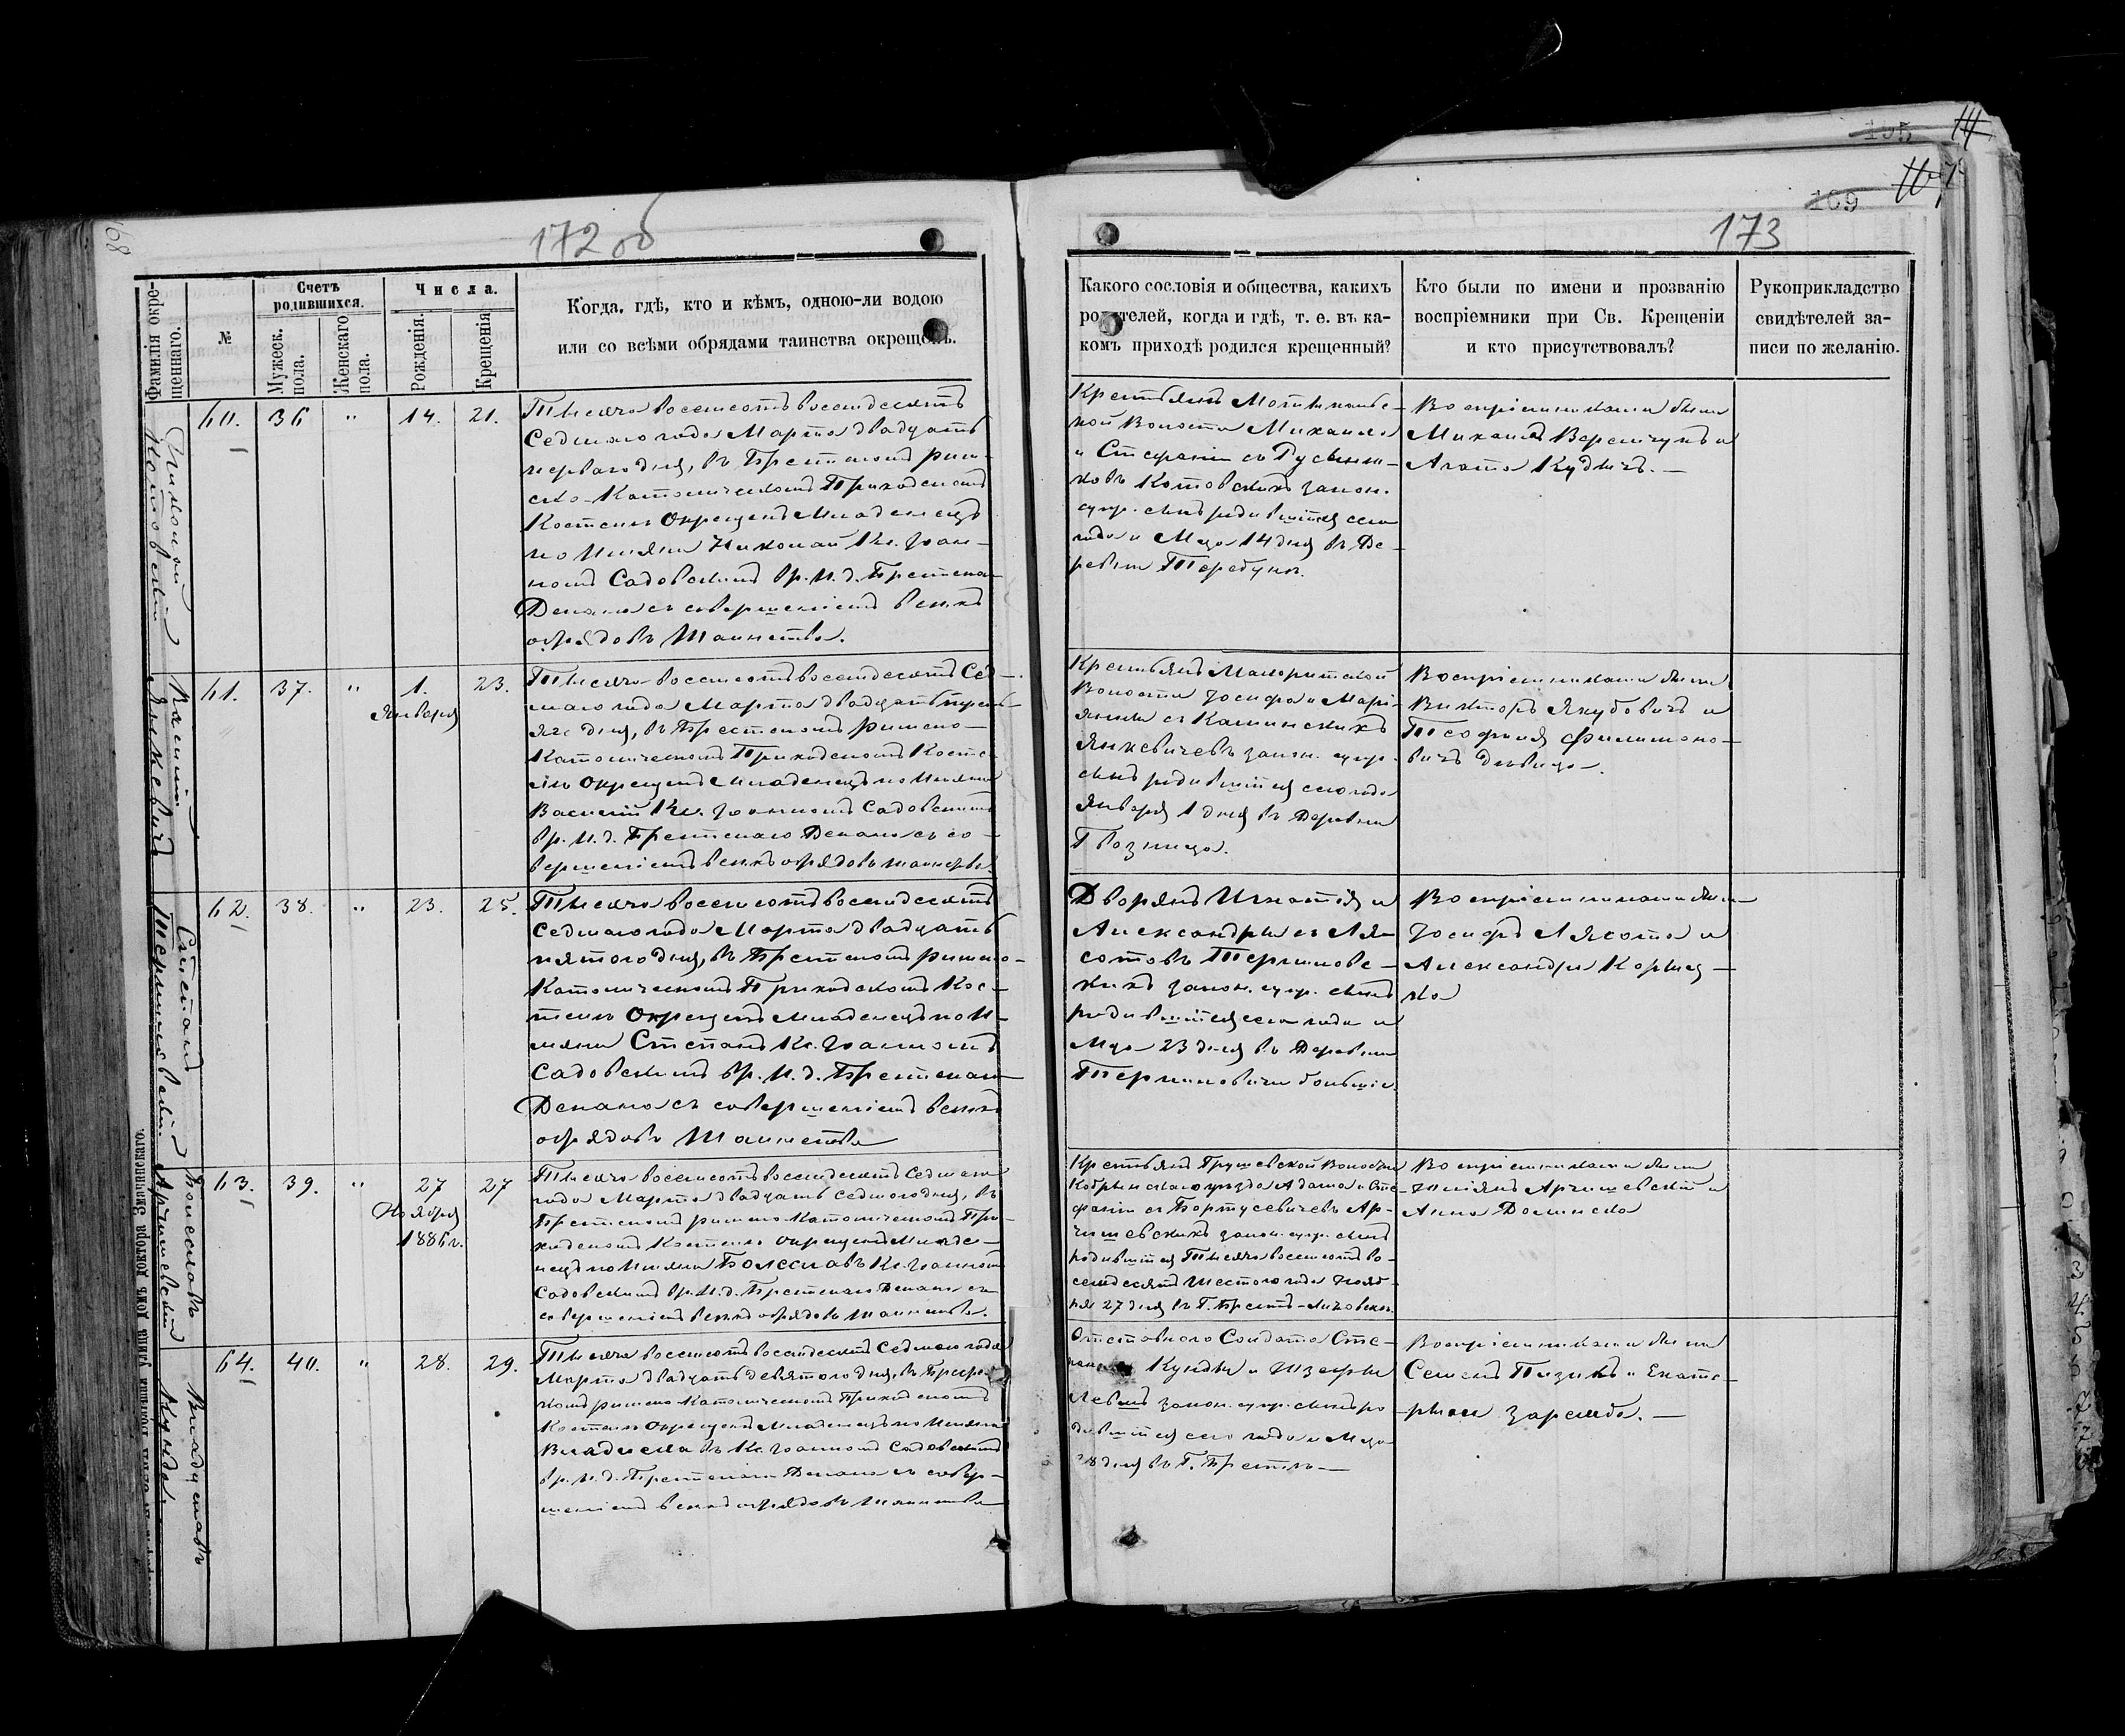 172 об
173
168
195
169
Фамилія окре-
щеннаго.
№
Счетъ
родившихся.
Мужеск.
пола.
Женскаго
пола.
Числа.
Рожденія.
Крещенія
Когда, гдѣ, кто и кѣмъ, одною-ли водою
или со всѣми обрядами таинства окрещенъ.
Какого сословія и общества, какихъ
родителей, когда и гдѣ, т. е. въ ка-
комъ приходѣ родился крещенный?
Кто были по имени и прозванію
воспріемники при Св. Крещеніи
и кто присутствовалъ?
Рукоприкладство
свидѣтелей за-
писи по желанію.
Николай
Котовскій
60. 36 " 14. 21.
Тысяча восемьсотъ восемьдесятъ
Седьмаго года Марта двадцать
перваго дня, въ Брестскомъ рим-
ско-Католическомъ Приходскомъ
Костелѣ Окрещенъ Младенецъ
по Имяни Николай Кс. Іоан-
номъ Садовскимъ вр. И. д. Брестскаго
Декана съ совершеніемъ всѣхъ
обрядовъ Таинства.
Крестьянъ Мотыкальс-
кой Волости Михаила
и Стефаніи съ Гусыни-
ковъ Котовскихъ закон.
супр. сынъ родившійся сего
года и Мца 14 дня въ Де-
ревни Теребунь.
Воспріемниками были
Михаилъ Веремчукъ и
Агата Кудличъ. —
Василій
Янкевичъ
61. 37. " 1. 23.
Января
Тысяча восемьсотъ восемьдесятъ Сед-
маго года Марта двадцать треть-
яго дня, въ Брестскомъ римско-
Католическомъ Приходскомъ Косте-
лѣ Окрещенъ Младенецъ по Имяни
Василій Кс. Іоанномъ Садовскимъ
вр. И. д. Брестскаго Декана съ со-
вершеніемъ всѣхъ обрядовъ таинства.
Крестьянъ Малоритской
Волости Іосифа и Марі-
янны съ Каминскихъ
Янкевичевъ закон. супр.
сынъ родившійся сего года
Января 1 дня въ Деревни
Гвозница.
Воспріемниками были
Викторъ Якубовичъ и
Теофиля Филимоно-
вичъ дѣвица.
Степанъ
Терликовскій.
62. 38. " 23. 25.
Тысяча восемьсотъ восемьдесятъ
Седьмаго года Марта двадцать
пятого дня, въ Брестскомъ римско-
Католическомъ Приходскомъ Кос-
телѣ Окрещенъ Младенецъ по И-
мяни Степанъ Кс. Іоанномъ
Садовскимъ вр. И. д. Брестскаго
Декана съ совершеніемъ всѣхъ
обрядовъ Таинства
Дворянъ Игнатія и
Александры съ Ля-
сотовъ Терликовс-
кихъ закон. супр. сынъ
родившійся сего года и
Мца 23 дня въ Деревни
Воспріемниками были
Іосифъ Лясота и
Александра
Болеславъ
Арчишевскій
63. 39. " 27 27
Ноября
1886 г.
Тысяча восемьсотъ восемьдесятъ Седьмаго
года Марта двадцать седьмого дня, въ
Брестскомъ римско Католическомъ При-
ходскомъ Костелѣ окрещенъ Младе-
нецъ по Имяни Болеславъ Кс. Іоанномъ
Садовскимъ вр. И. д. Брестскаго Декана съ
совершеніемъ всѣхъ обрядовъ Таинства.
Крестьянъ Грушевской Волости
Кобрынскаго уѣзда Адама и Сте-
фаніи съ Бартусевичевъ Ар-
чишевскихъ закон. супр. сынъ
родившійся Тысяча восемьсотъ во-
семдесятъ Шестого года Нояб-
ря 27 дня въ Г. Брестъ-Литовскѣ.
Воспріемниками были
Юліянъ Арчишевскій и
Анна Долинска
Владиславъ
Кунда
64. 40. " 28. 29.
Тысяча восемьсотъ восемьдесятъ Седьмаго года
Марта двадцать девятого дня, въ Брест-
комъ римско Католическомъ Приходскомъ
Костелѣ Окрещенъ Младенецъ по Имяни
Владиславъ Кс. Іоанномъ Садовскимъ
вр. И. д. Брестскаго Декана съ совер-
шеніемъ всѣхъ обрядовъ Таинства
Отставного Солдата Сте-
пана Кунды и Юзефы
закон. супр. сынъ ро-
дившійся сего года и Мца
28 дня въ Г. Брестѣ —
Воспріемниками были
Семенъ и Екате-
рина Заремба. —